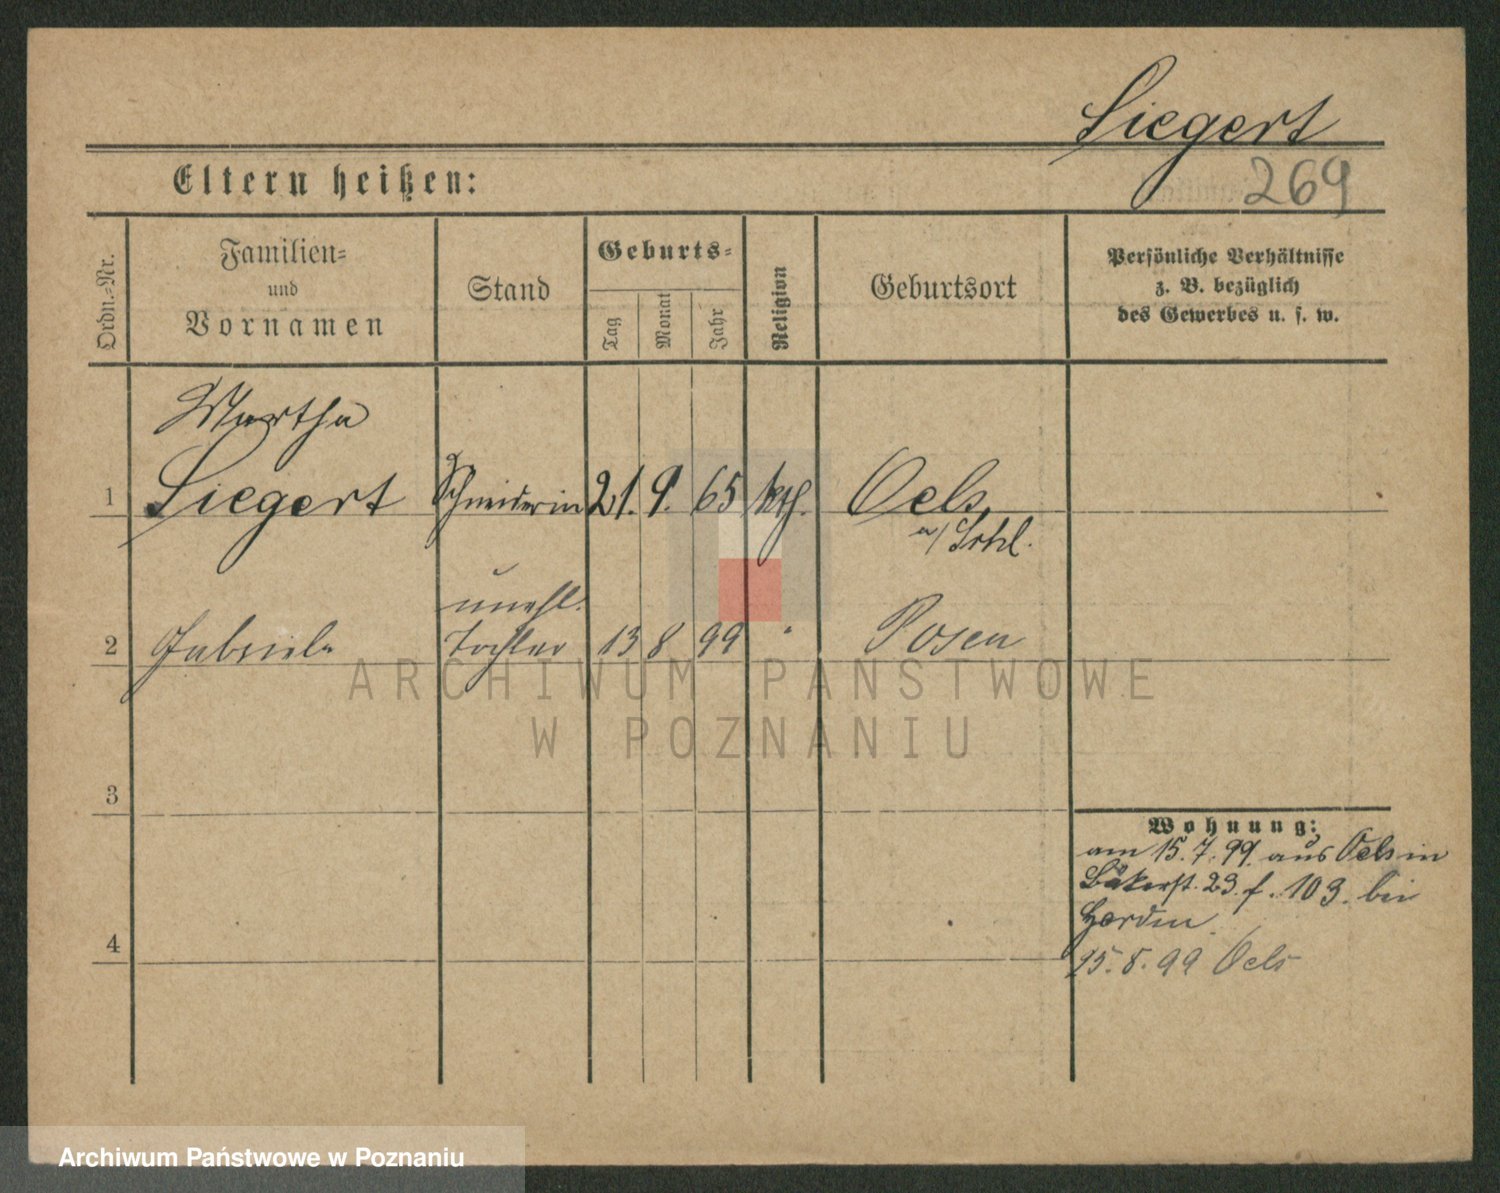 Siegert
Eltern heißen:
269
Ordn.-Nr.
Familien-
und
Vornamen
Stand
Geburts-
Tag
Monat
Jahr
Religion
Geburtsort
Persönliche Verhältnisse
z. B. bezüglich
des Gewerbes u. s. w.
Martha
1 Siegert Schneiderin 21. 9. 65 kth. Oels
unehl.
2 Gabriele Tochter 13 8 99 " Posen
ARCHIWUM PAŃSTWOWE
W POZNANIU
3
Wohnung:
am 15.7.99. aus Oels in
23. 103. bei
4
15.8.99 Oels
Archiwum Państwowe w Poznaniu